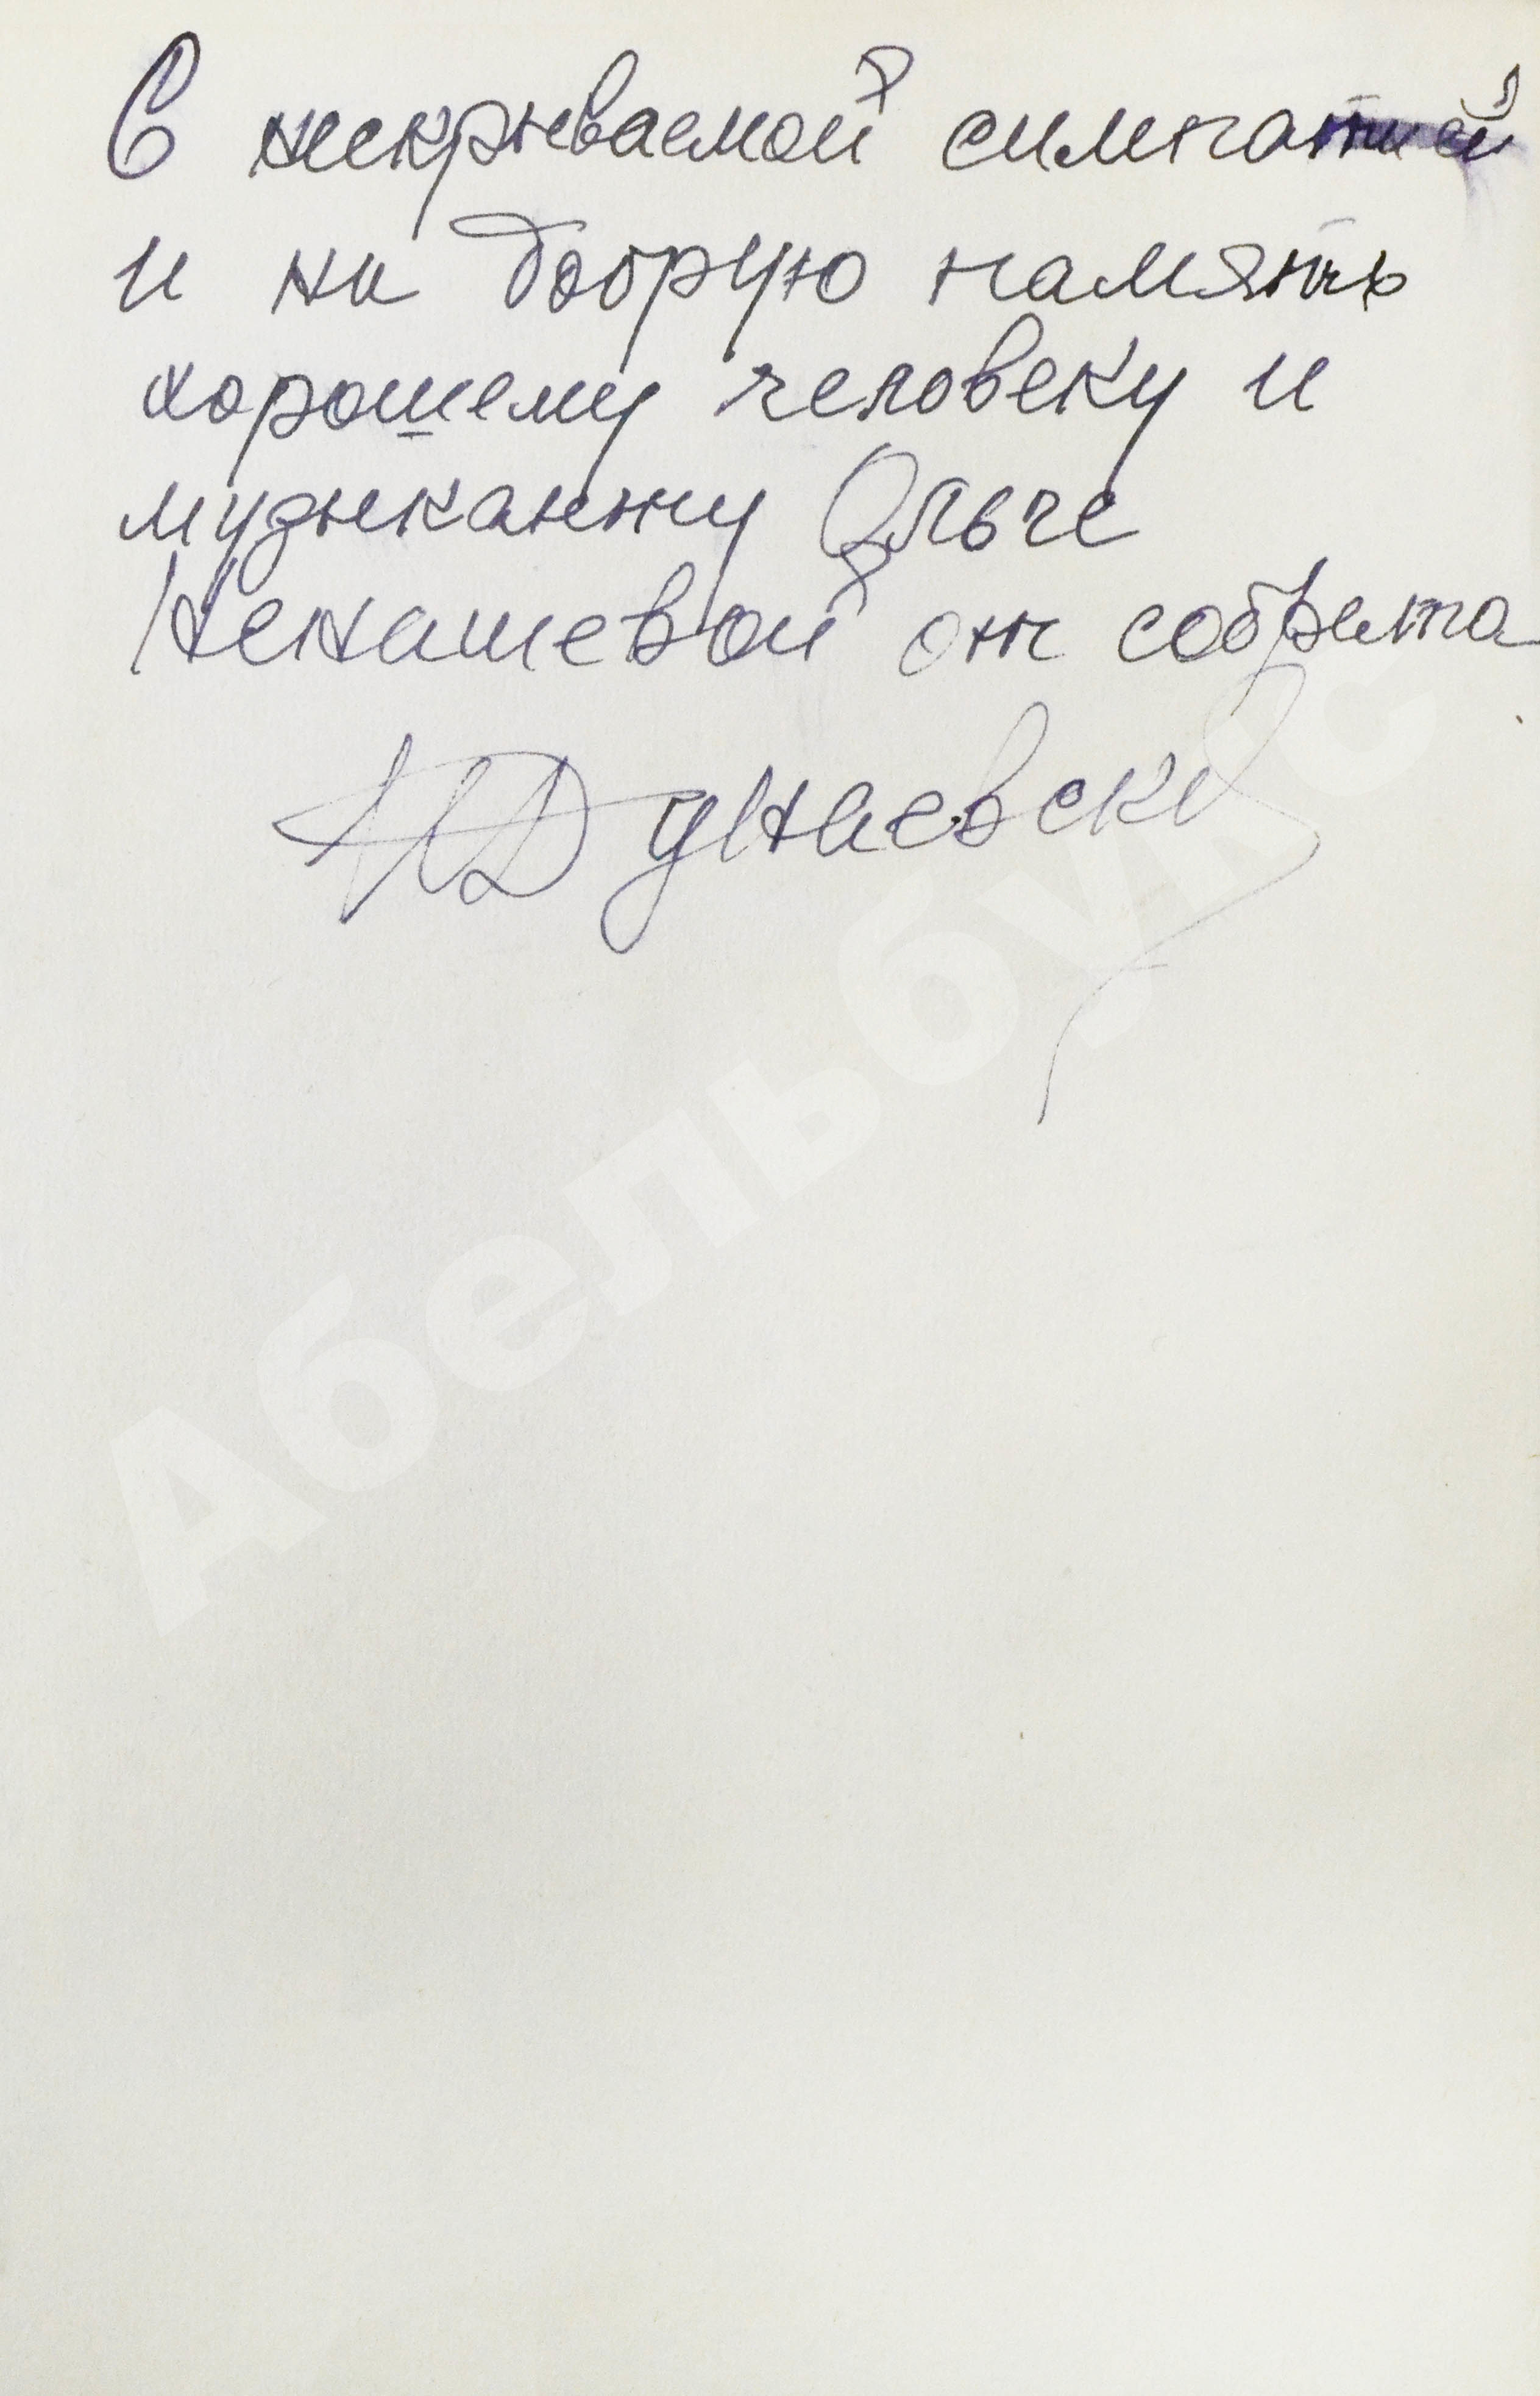 С нескрываемой симпатией
и на добрую память
хорошему человеку и
музыканту Ольге
Ненашевой от собрата
Дунаевский
Абельбукс